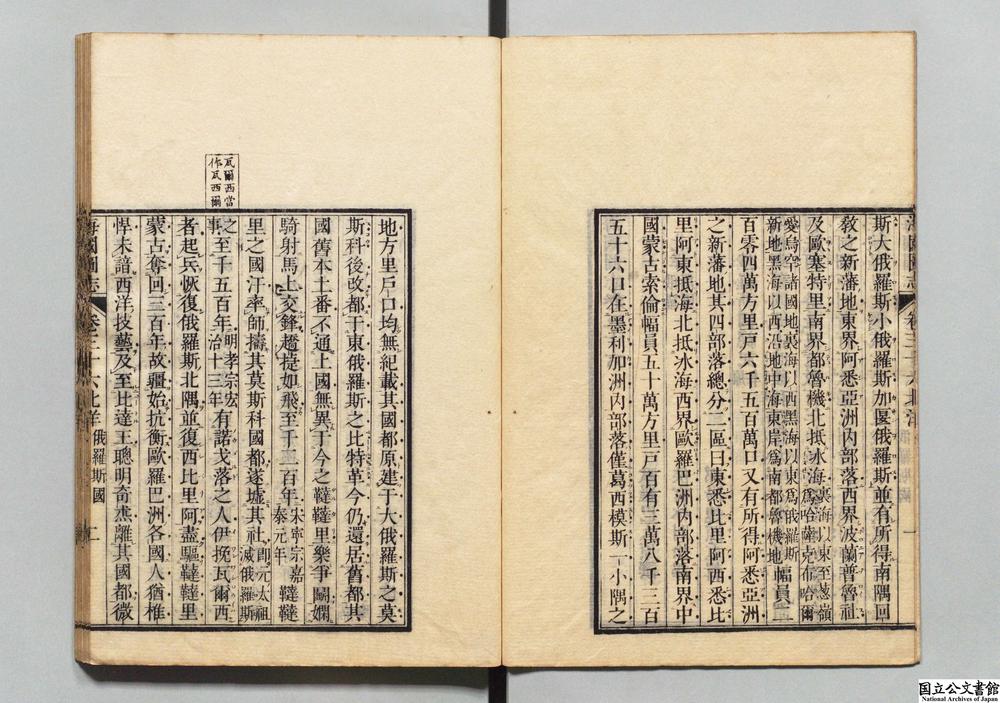 斯大俄羅斯小俄羅斯加匽俄羅斯並有所得南隅回
敎之新藩地東界阿悉亞洲内部落西界波蘭普魯社
及歐塞特里南界都魯機北抵冰海裏海以東至葱嶺爲哈薩克布哈爾
愛烏罕諸國地裏海以西黑海以東爲俄羅斯新地黑海以西沿地中海東岸爲南都魯機地幅員二
百零四萬方里戸六千五百萬口又有所得阿悉亞洲
之新藩地其四部落總分二區曰東悉比里阿西悉比
里阿東抵海北抵冰海西界歐羅巴洲内部落南界中
國蒙古索倫幅員五十萬方里戸百有三萬八千三百
五十六口在墨利加洲内部落僅葛西模斯一小隅之
海國圖志
卷三十六北洋
一
地方里戸口均無紀載其國都原建于大俄羅斯之莫
斯科後改都于東俄羅斯之比特革今仍還居舊都其
國舊本土番不通上國無異于今之韃韃里樂爭鬭嫻
騎射馬上交鋒趫捷如飛至千二百年宋寧宗嘉泰元年韃韃
里之國汗率師擣其莫斯科國都遂墟其社即元太祖滅俄羅斯
之事至千五百年明孝宗宏治十三年有諾戈落之人伊挽瓦爾西
者起兵恢復俄羅斯北隅並復西比里阿盡驅韃韃里
蒙古奪回三百年故疆始抗衡歐羅巴洲各國人猶椎
悍未諳西洋技藝及至比達王聰明奇杰離其國都微
海國圖志
卷三十六北洋 俄羅斯國
二
瓦爾西當
作瓦西爾
国立公文書館
National Archives of Japan